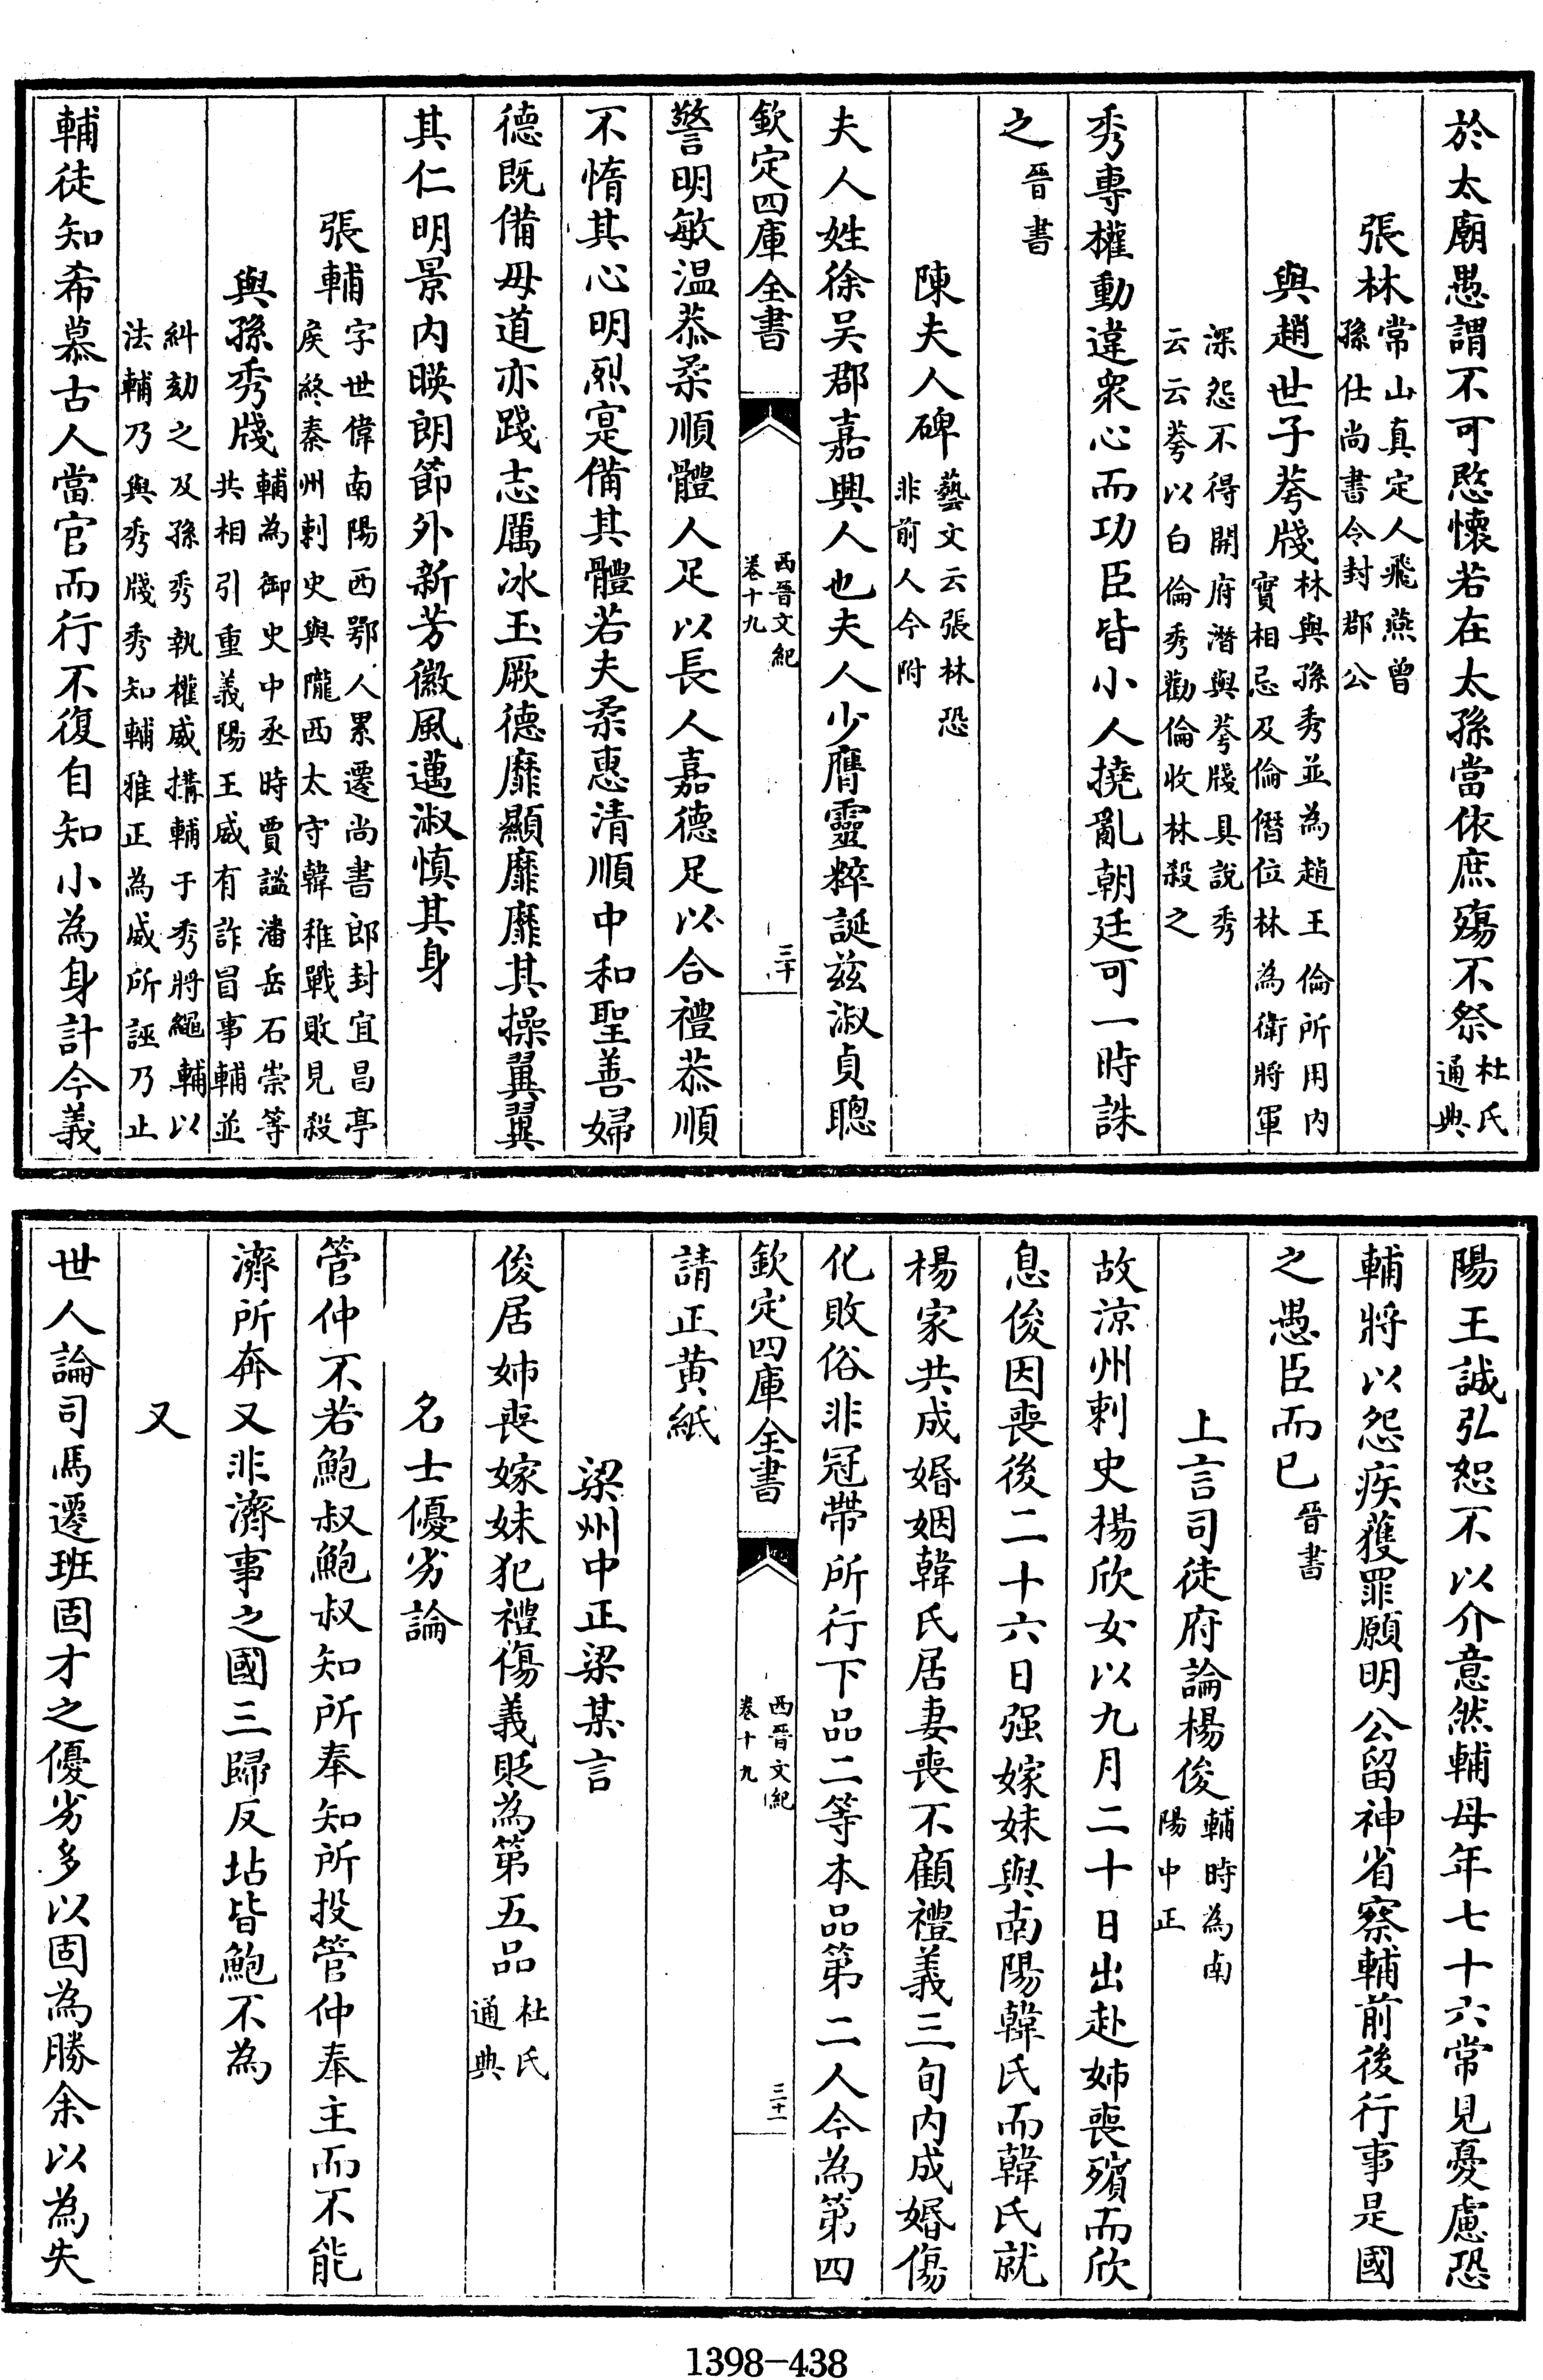 於太廟愚謂不可愍懷若在太孫當依庶殤不祭杜氏通典
張林常山真定人飛燕曾孫仕尚書令封郡公
與趙世子荂牋林與孫秀並為趙王倫所用内實相忌及倫僭位林為衛將軍
深怨不得開府潛與荂牋具說秀云云荂以白倫秀勸倫收林殺之
秀專權動違衆心而功臣皆小人撓亂朝廷可一時誅
之晉書
陳夫人碑藝文云張林恐非前人今附
夫人姓徐吳郡嘉興人也夫人少膺靈粹誕茲淑貞聰
欽定四庫全書 西晉文紀卷十九 三十
警明敏温恭柔順體人足以長人嘉德足以合禮恭順
不惰其心明烈寔備其體若夫柔惠清順中和聖善婦
德既備母道亦踐志厲冰玉厥德靡顯靡靡其操翼翼
其仁明景内暎朗節外新芳徽風邁淑慎其身
張輔字世偉南陽西鄂人累遷尚書郎封宜昌亭侯終秦州刺史與隴西太守韓稚戰敗見殺
與孫秀牋輔為御史中丞時賈謐潘岳石崇等共相引重義陽王威有詐冒事輔並
糾劾之及孫秀執權威搆輔于秀將繩輔以法輔乃與秀牋秀知輔雅正為威所誣乃止
輔徒知希慕古人當官而行不復自知小為身計今義
陽王誠弘恕不以介意然輔母年七十六常見憂慮恐
輔將以怨疾獲罪願明公留神省察輔前後行事是國
之愚臣而已晉書
上言司徒府論楊俊輔時為南陽中正
故涼州刺史楊欣女以九月二十日出赴姊喪殯而欣
息俊因喪後二十六日强嫁妹與南陽韓氏而韓氏就
楊家共成婚姻韓氏居妻喪不顧禮義三旬内成婚傷
化敗俗非冠帶所行下品二等本品第二人今為第四
欽定四庫全書 西晉文紀卷十九 三十一
請正黄紙
梁州中正梁某言
俊居姊喪嫁妹犯禮傷義貶為第五品杜氏通典
名士優劣論
管仲不若鮑叔鮑叔知所奉知所投管仲奉主而不能
濟所奔又非濟事之國三歸反坫皆鮑不為
又
世人論司馬遷班固才之優劣多以固為勝余以為失
1398-438